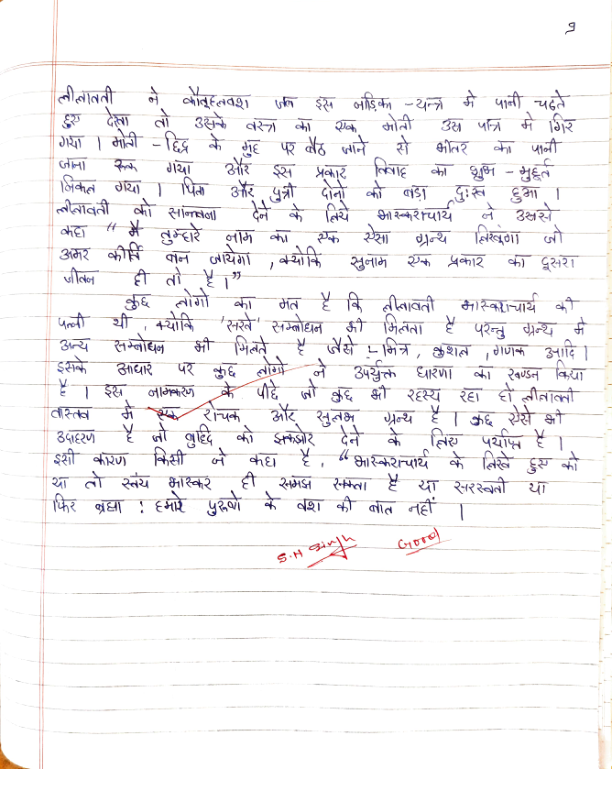 9
लीलावती ने कौतूहलवश जब इस नाड़िका - यन्त्र में पानी चढ़ते
हुए देखा तो उसके वस्त्र का एक मोती उस पात्र में गिर
गया । मोती - छिद्र के मुह पर बैठ जाने से भीतर का पानी
जाना रूक गया और इस प्रकार विवाह का शुभ - मुहूर्त
निकल गया । पिता और पुत्री दोनो को बडा दुःख हुआ ।
लीलावती को सान्त्वना देने के लिये भास्कराचार्य ने उससे
कहा " मैं तुम्हारे नाम का एक ऐसा ग्रन्थ लिखूंगा जो
अमर कीर्ति बन जायेगा , क्योकि सुनाम एक प्रकार का दूसरा
जीवन ही तो है । "
कुछ लोगो का मत है कि लीलावती भास्कराचार्य की
पत्नी थी , क्योकि 'सखे' सम्बोधन भी मिलता है परन्तु ग्रन्थ मे
अन्य सम्बोधन भी मिलते है जैसे :- मित्र , कुशल , गणक आदि ।
इसके आधार पर कुछ लोगो ने उपर्युक्त धारणा का खण्डन किया
है । इस नामकरण के पीछे जो कुछ भी रहस्य रहा हो लीलावती
वास्तव मे एक रोचक और सुलभ ग्रन्थ है । कुछ ऐसे भी
उदाहरण है जो बुद्दि को झकझोर देने के लिए पर्याप्त है ।
इसी कारण किसी ने कहा है , " भास्कराचार्य के लिखे हुए को
या तो स्वंय भास्कर ही समझ सकता है या सरस्वती या
फिर ब्रह्मा : हमारे पुरुषो के वश की बात नहीं ।
S.N Singh Good